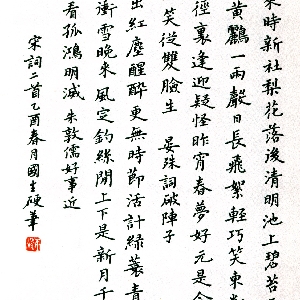 來時新社梨花落後清明池上碧苔三
黃鸝一兩聲日長飛絮輕巧笑東
徑裏逢迎疑怪昨宵春夢好元是今
笑從雙臉生 晏殊詞破陣子
出紅塵醒醉更無時節活計綠蓑青
衝雪晚來風定釣絲閒上下是新月千
看孤鴻明滅 朱敦儒好事近
宋詞二首乙酉春月國生硬筆